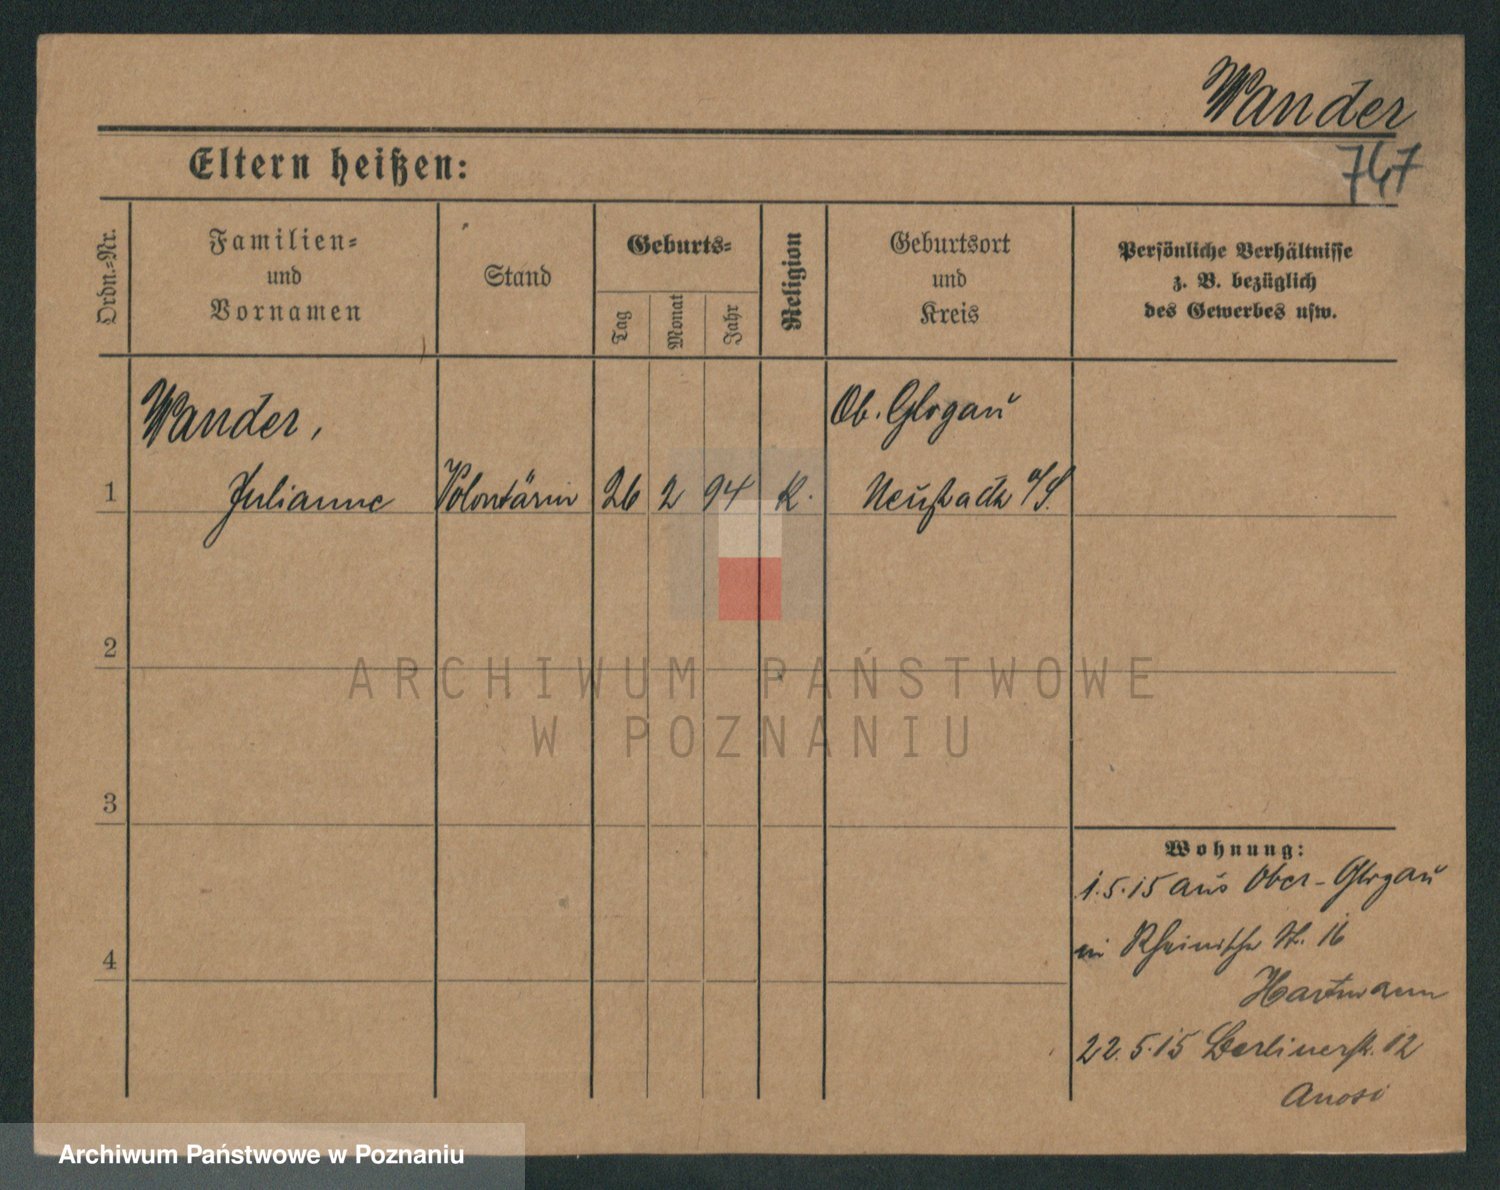 Wander
747
Eltern heißen:
Ordn.-Nr.
Familien-
und
Vornamen
Stand
Geburts-
Tag
Monat
Jahr
Religion
Geburtsort
und
Kreis
Persönliche Verhältnisse
z. B. bezüglich
des Gewerbes usw.
Wander,
Ob. Glogau
1
Julianne Volontärin 26 2 94 K. Neustadt o/S.
2
ARCHIWUM PAŃSTWOWE
W POZNANIU
3
Wohnung:
1.5.15 aus Ober-Glogau
in Rheinische St. 16
Hartmann
4
22.5.15 Berlinerstr. 12
Anosi
Archiwum Państwowe w Poznaniu